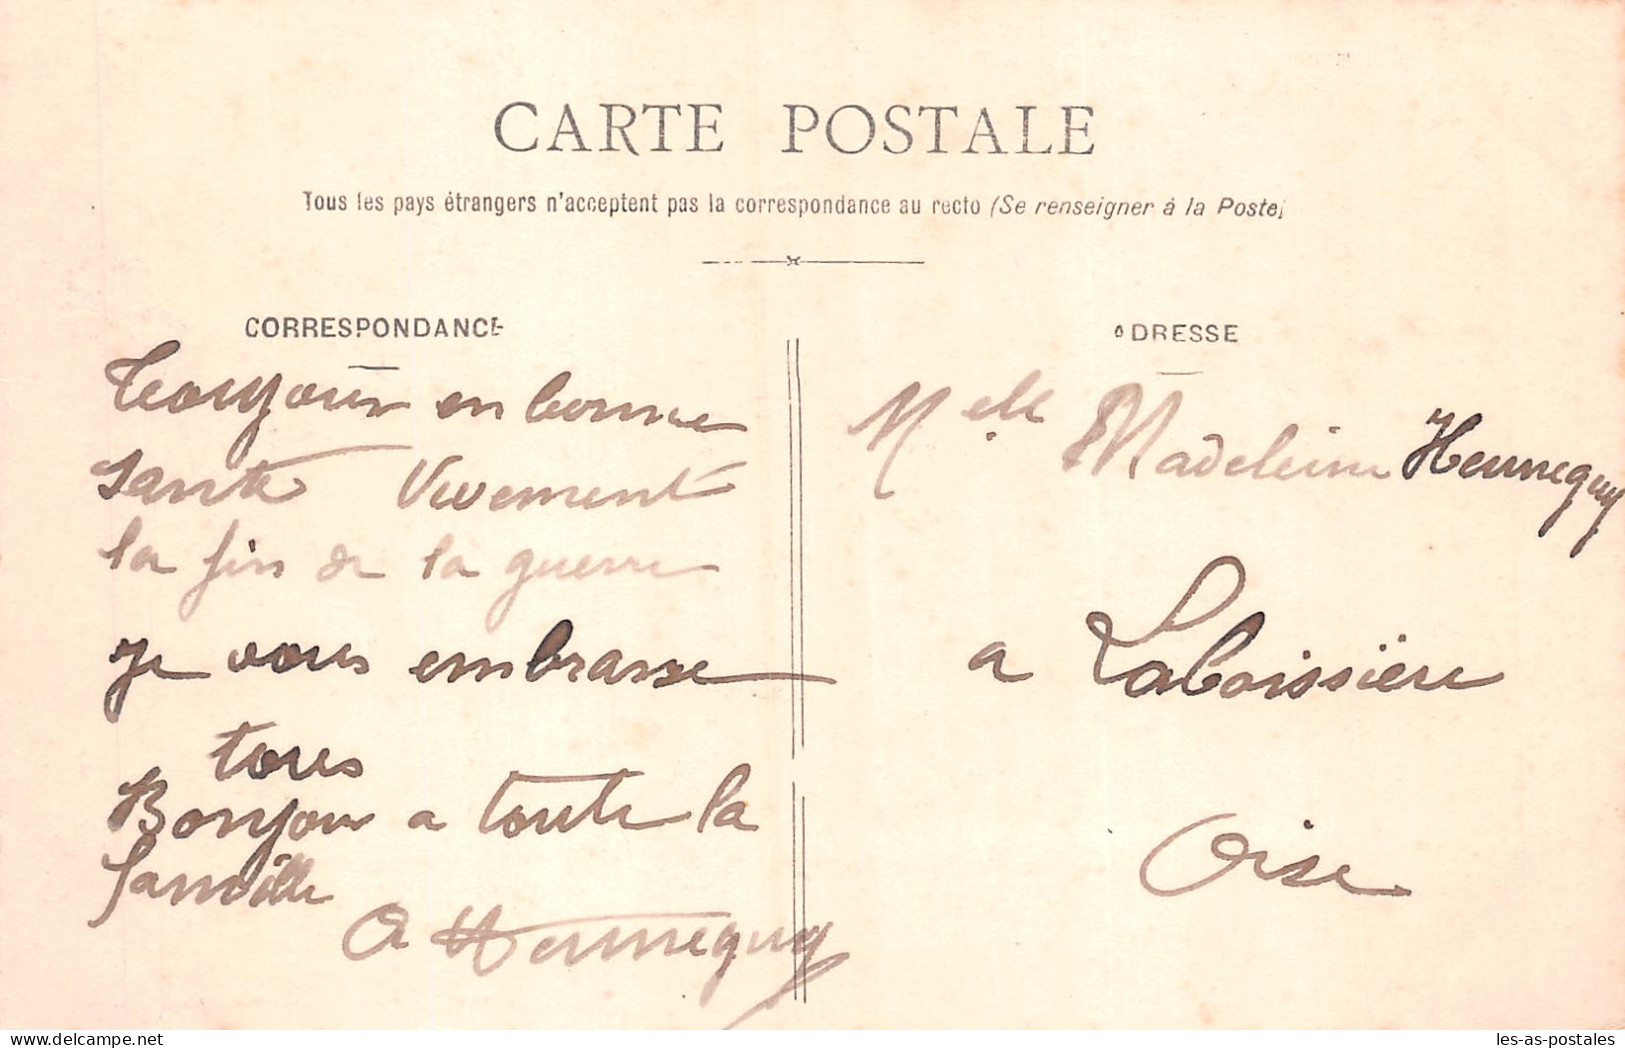 CARTE POSTALE
Tous les pays étrangers n'acceptent pas la correspondance au recto (Se renseigner à la Poste)
CORRESPONDANCE
Toujours en bonne
Santé Vivement
la fin de la guerre
je vous embrasse
tous
Bonjour a toute la
famille
A Hennequy
ADRESSE
Melle Madeleine Hennequy
a Laboissière
Oise
delcampe.net
les-as-postales